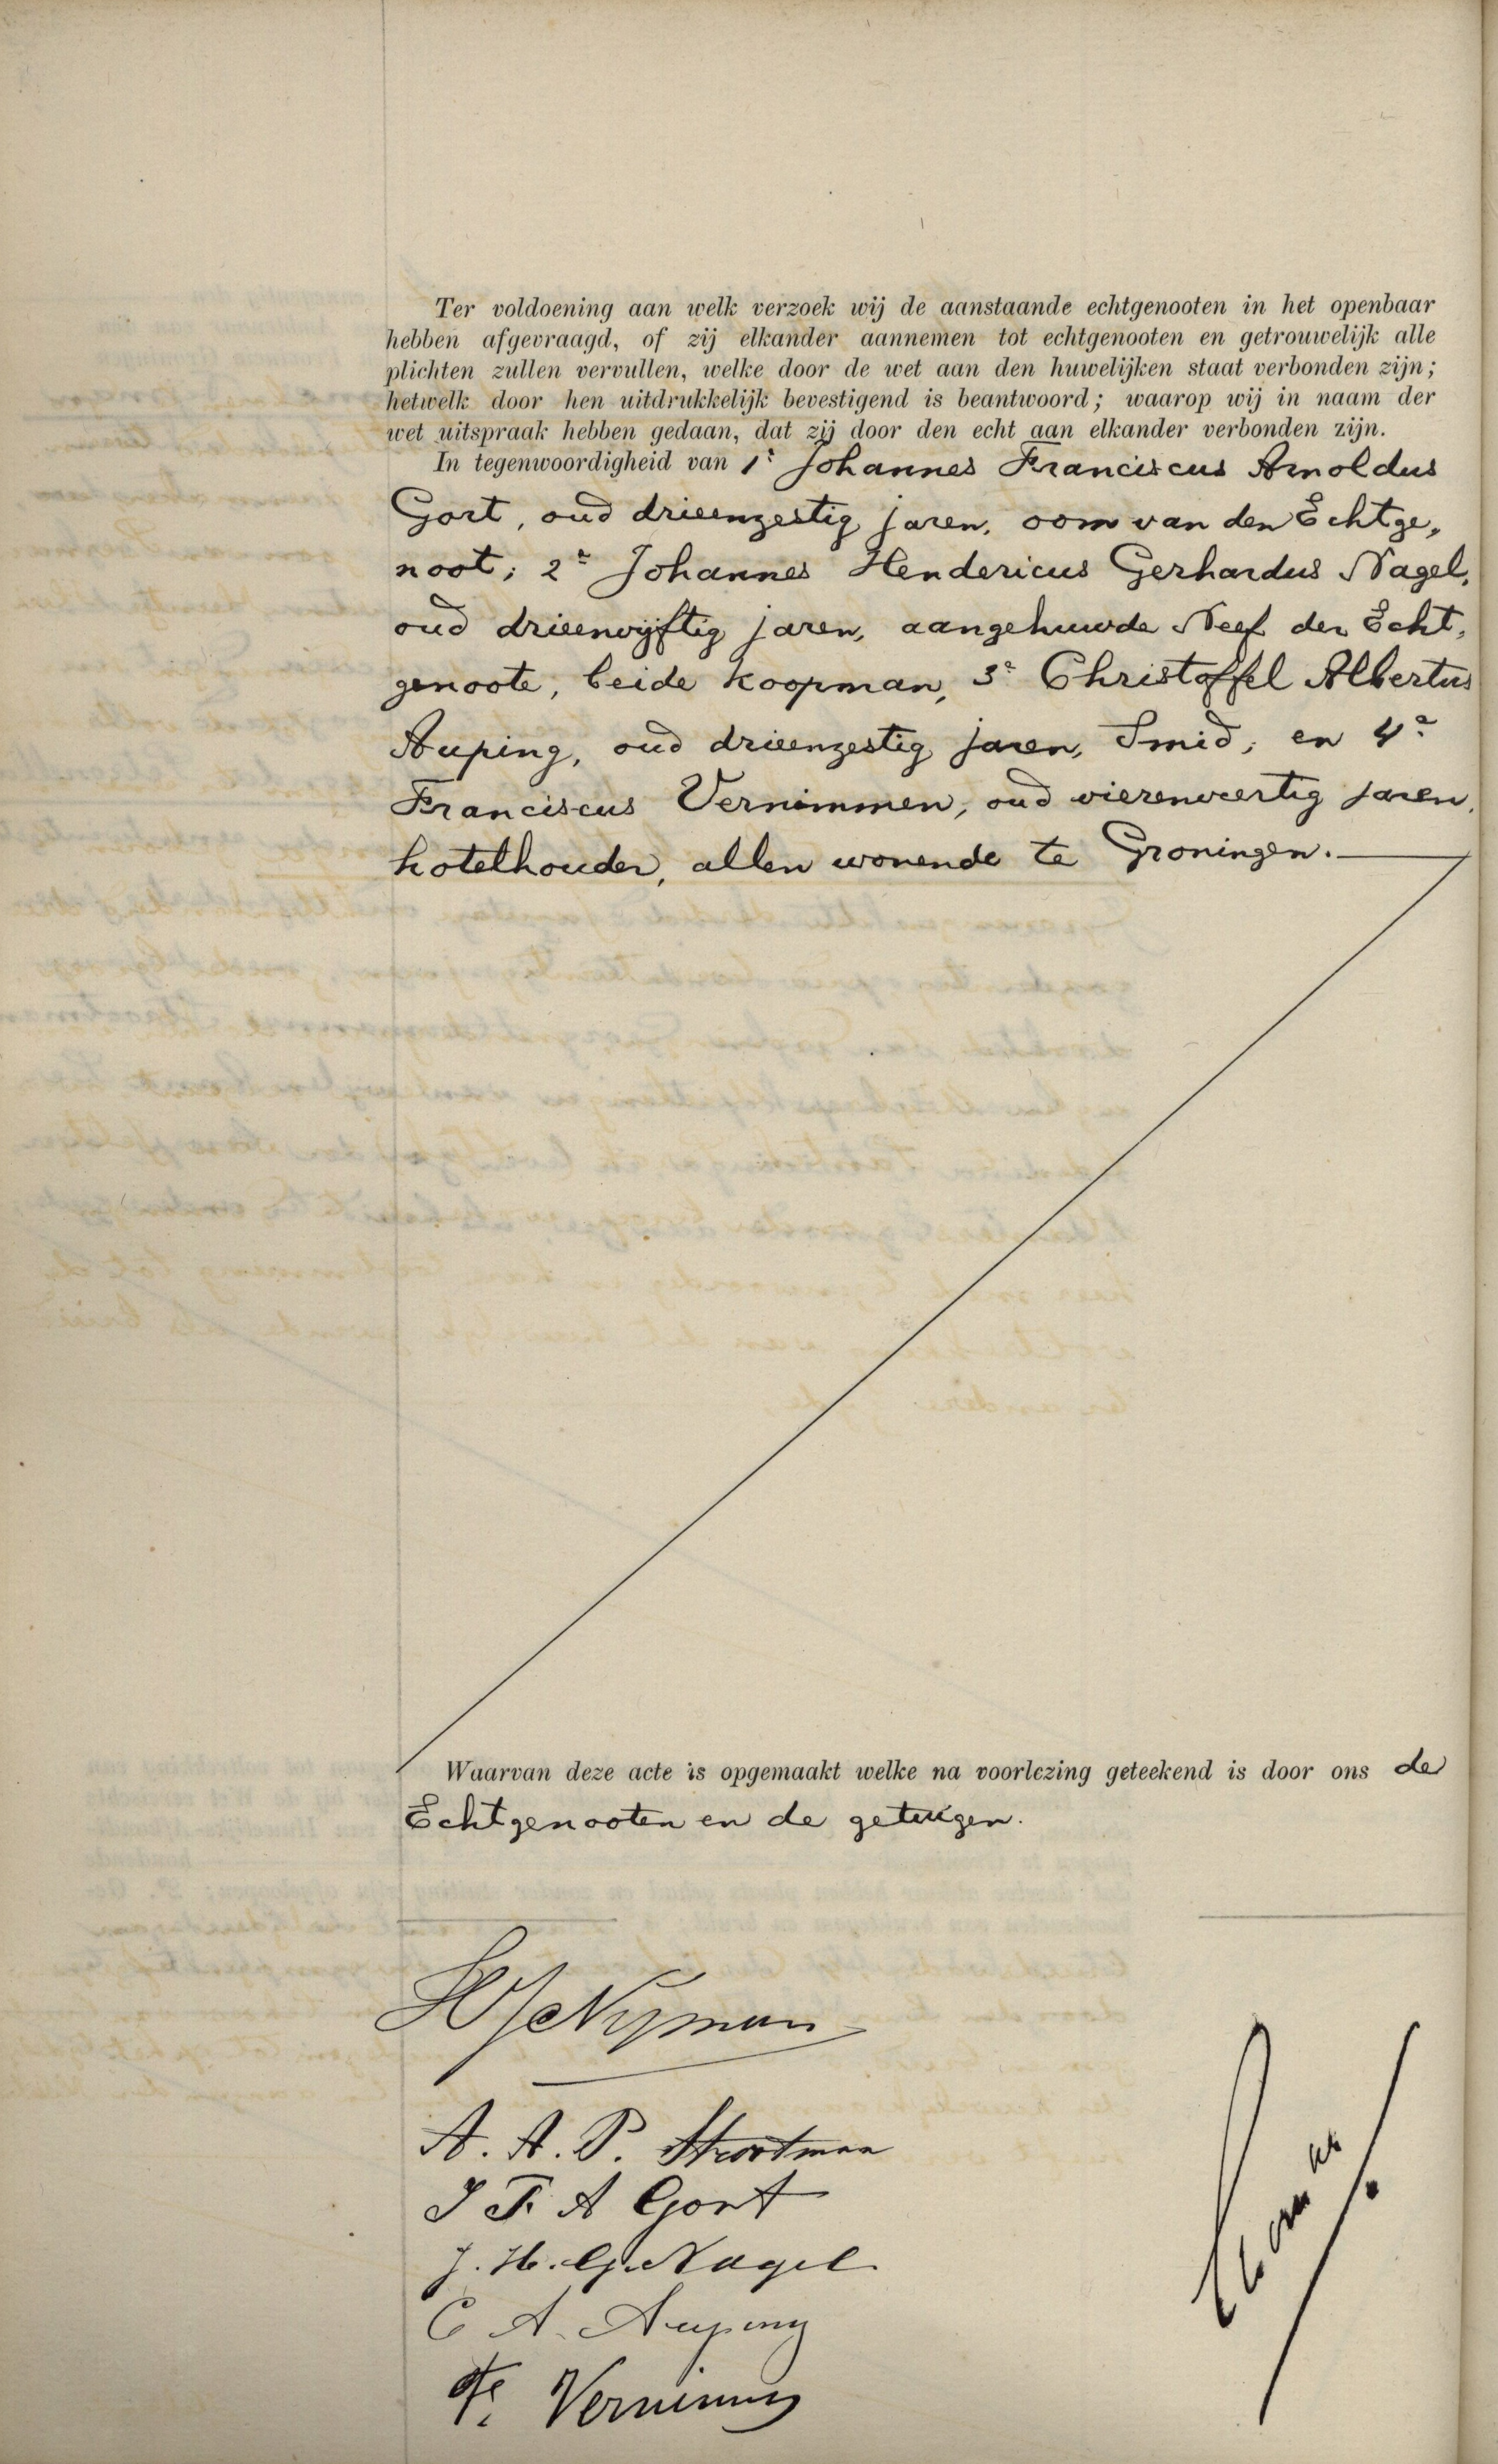 Ter voldoening aan welk verzoek wij de aanstaande echtgenooten in het openbaar
hebben afgevraagd, of zij elkander aannemen tot echtgenooten en getrouwelijk alle
plichten zullen vervullen, welke door de wet aan den huwelijken staat verbonden zijn;
hetwelk door hen uitdrukkelijk bevestigend is beantwoord; waarop wij in naam der
wet uitspraak hebben gedaan, dat zij door den echt aan elkander verbonden zijn.
In tegenwoordigheid van 1e Johannes Franciscus Arnoldus
Gort, oud drieenzestig jaren, oom van den Echtge„
noot; 2e Johannes Hendericus Gerhardus Nagel,
oud drieenvijftig jaren, aangehuwde Neef der Echt„
genoote, beide koopman, 3e Christoffel Albertus
Auping, oud drieenzestig jaren, Smid; en 4e
Franciscus Vernimmen, oud vierenveertig jaren,
hotelhouder, allen wonende te Groningen.
Waarvan deze acte is opgemaakt welke na voorlezing geteekend is door ons de
Echtgenooten en de getuigen.
Nijman
A. A. P. Strootman
J F. A Gort
J. H. G. Nagel
C A. Auping
Fr. Vernimmen